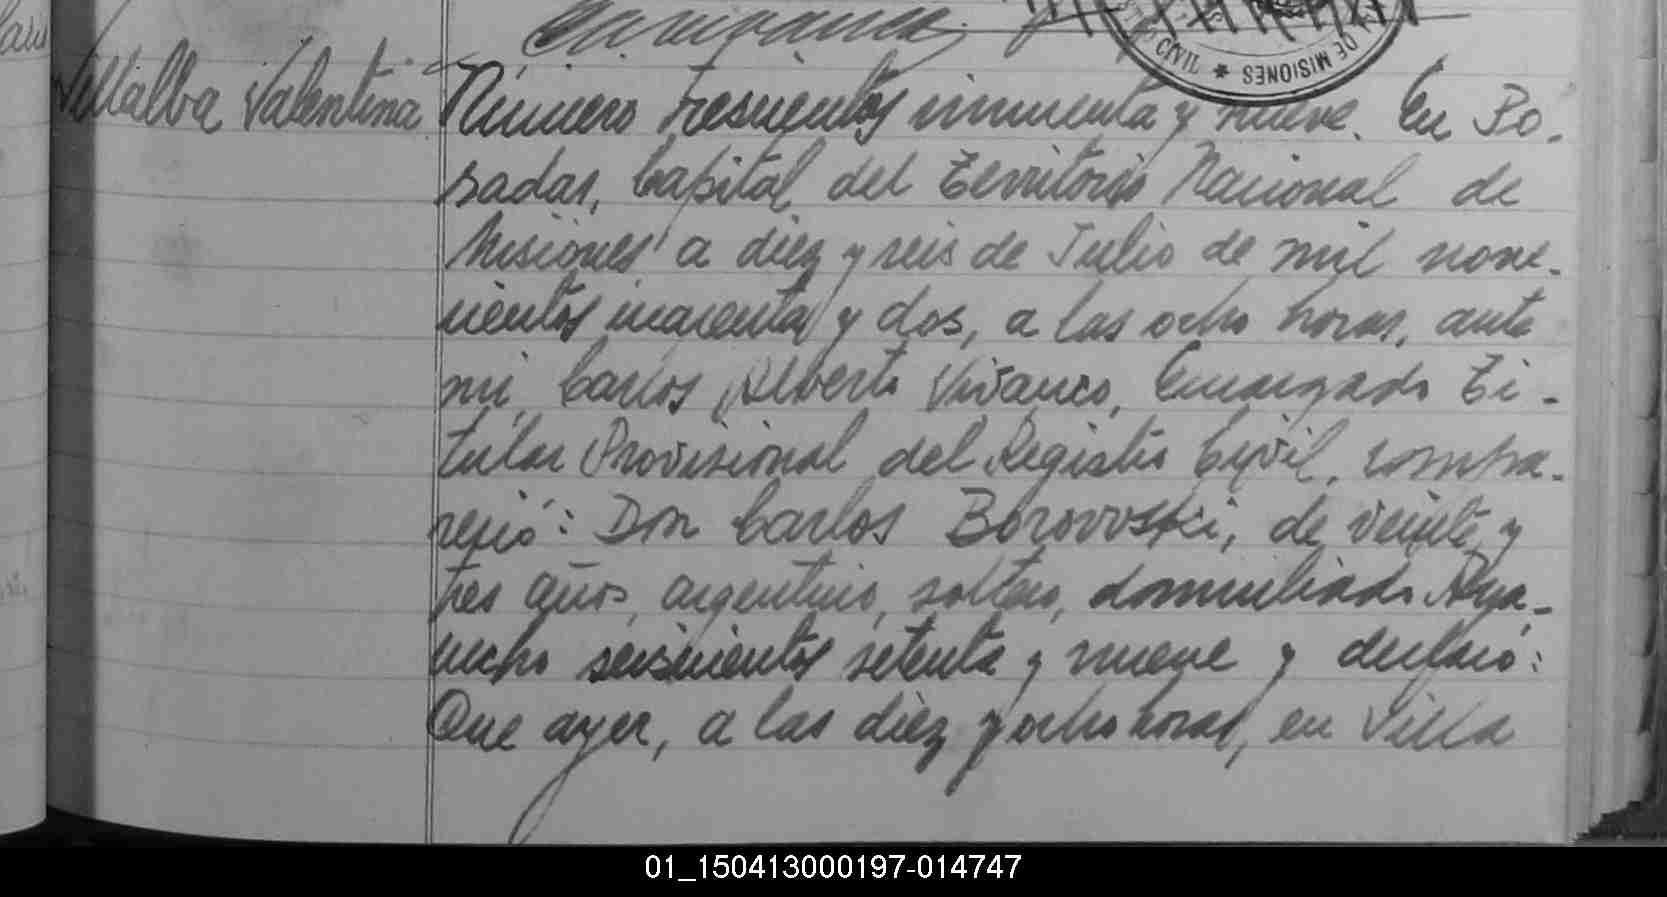 Villalba Valentina
Número trescientos cincuenta y nueve. En Po-
sadas, Capital del Territorio Nacional de
Misiones a diez y seis de Julio de mil nove-
cientos cuarenta y dos, a las ocho horas, ante
mi, Carlos Alberto Vivanco, Encargado Ti-
tular Provisional del Registro Civil, compa-
reció: Don Carlos Borovvski, de veinte y
tres años, argentino, soltero, domiciliado Aya-
cucho seiscientos setenta y nueve y declaró:
Que ayer, a las diez y ocho horas, en Villa
CIVIL * DE MISIONES
01_150413000197-014747